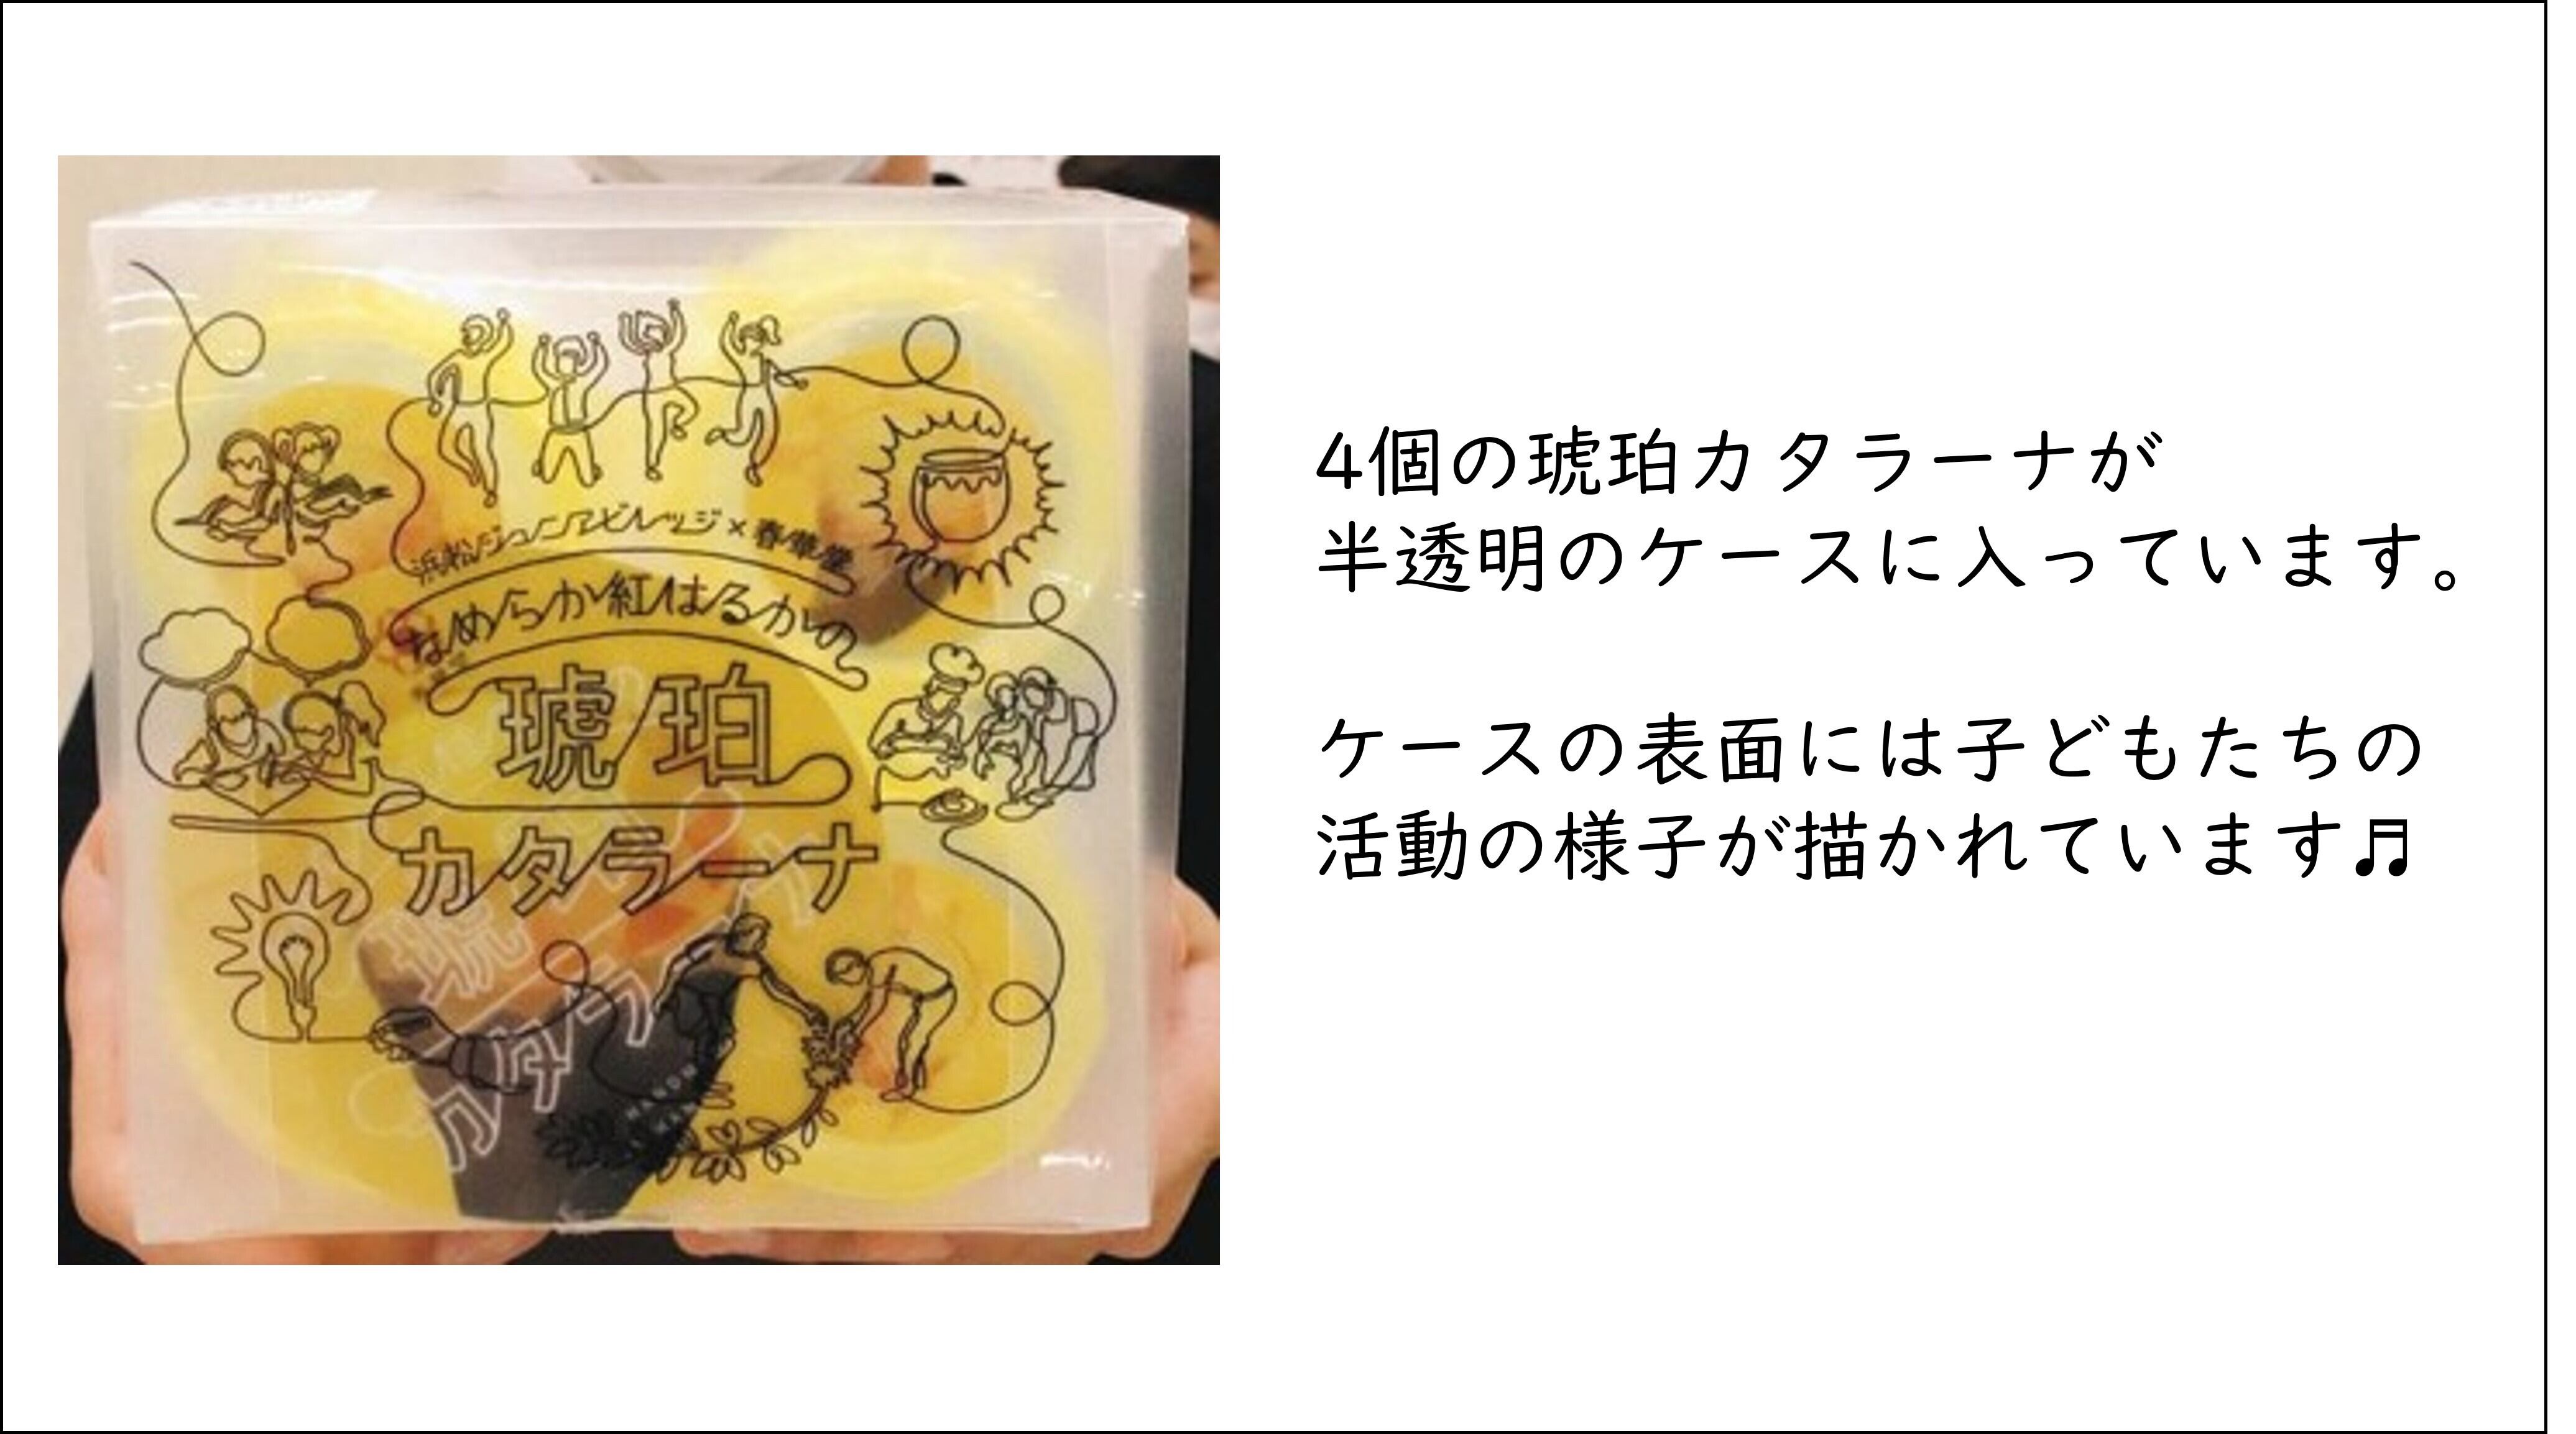 浜松ジュニアビレッジ×春華堂
なめらか紅はるかの
琥珀
カタラーナ
琥珀
カタラーナ
4個の琥珀カタラーナが
半透明のケースに入っています。
ケースの表面には子どもたちの
活動の様子が描かれています♬